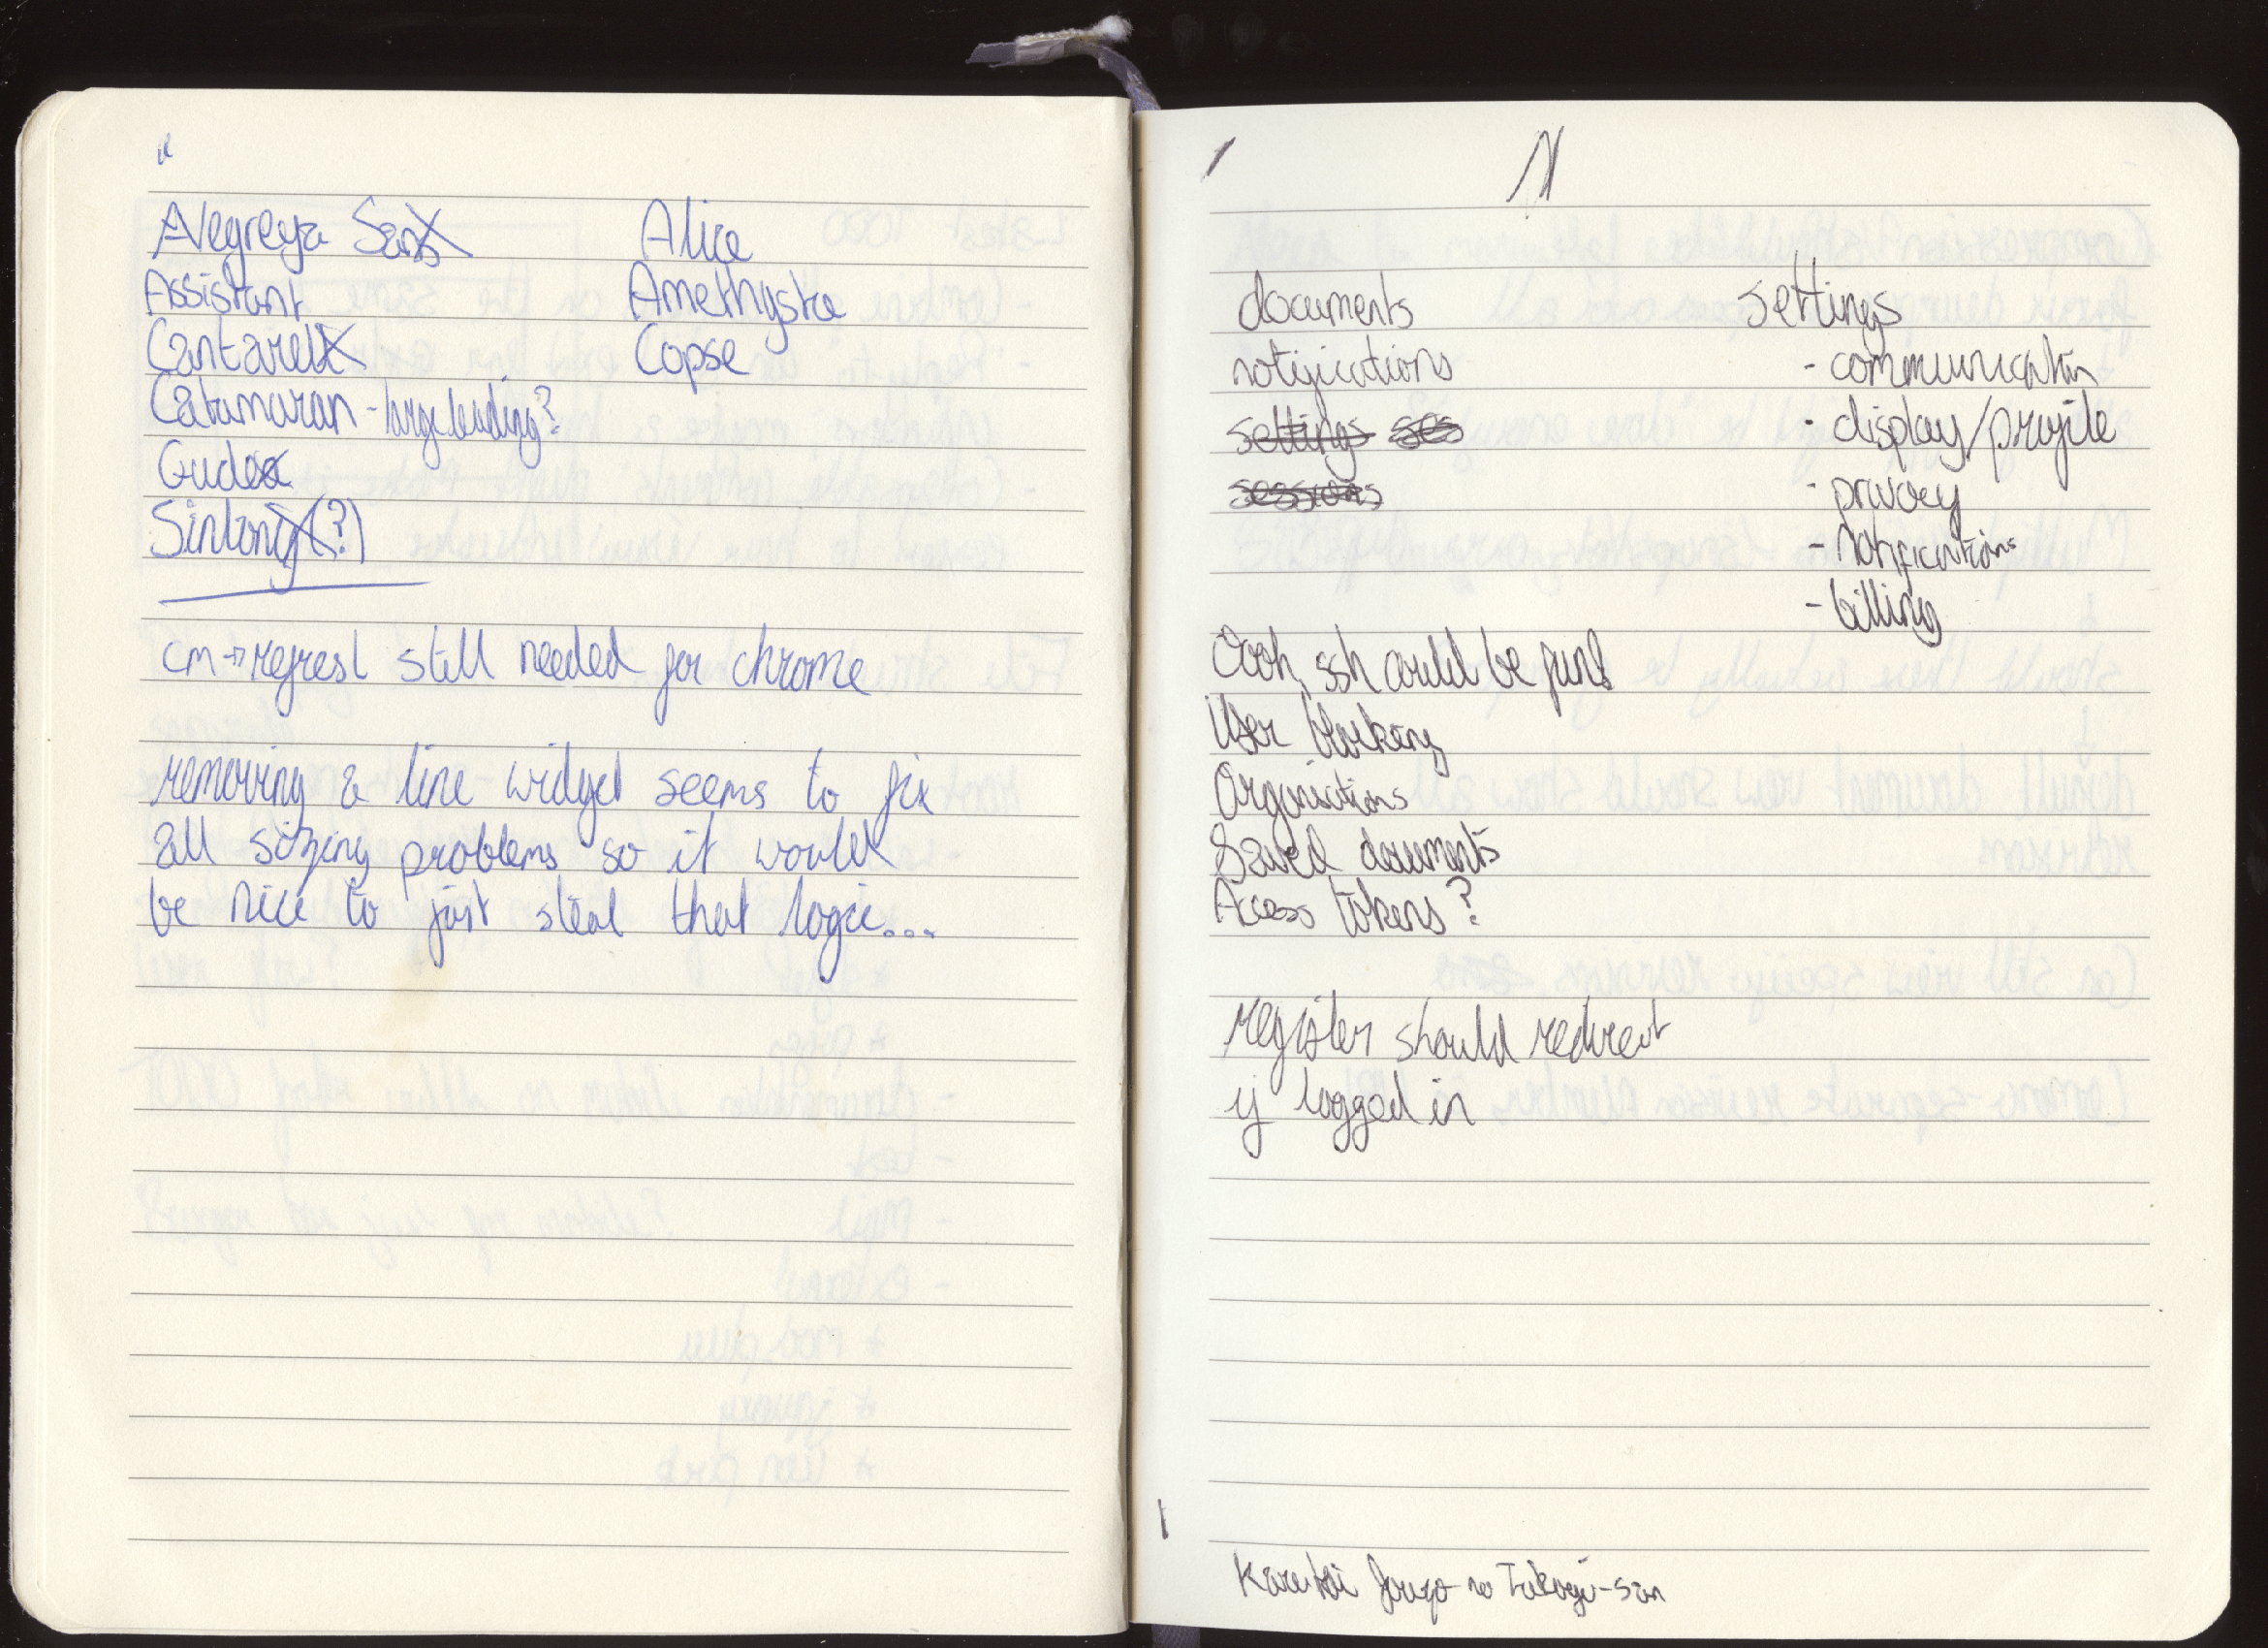 Alegreya Sans
Assistant
Cantarell
Catamaran - large leading?
Gudea
Sintony(?)
Alice
Amethysta
Copse
cm→refresh still needed for chrome
removing a line widget seems to fix
all sizing problems so it would
be nice to just steal that logic...
documents
notifications
settings ses
sessions
settings
- communication
- display/profile
- privacy
- notifications
- billing
Oooh, ssh could be fun!
User blocking
Organisations
Saved documents
Access tokens?
register should redirect
if logged in
Karakai Jouzo no Takagi-san